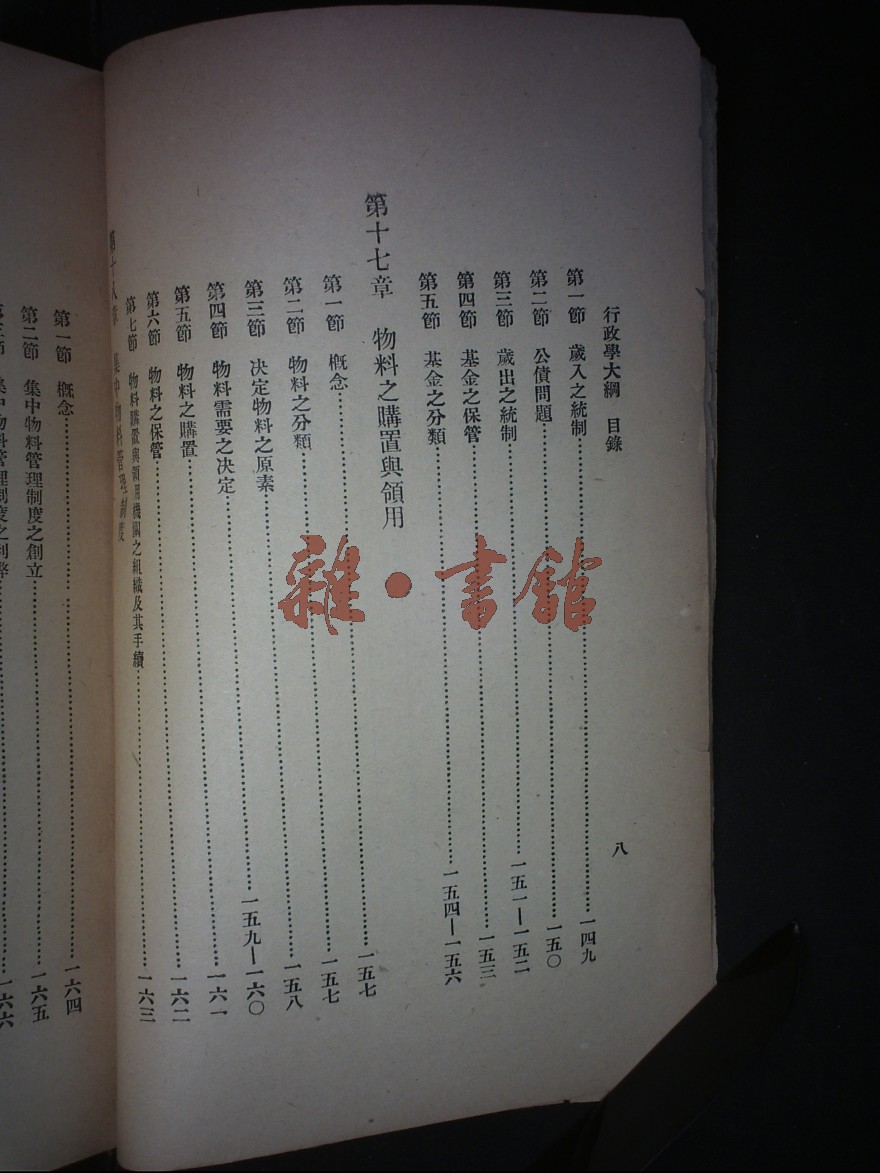 行政學大綱 目錄
八
第一節 歲入之統制…………一四九
第二節 公債問題…………一五〇
第三節 歲出之統制…………一五一—一五二
第四節 基金之保管…………一五三
第五節 基金之分類…………一五四—一五六
第十七章 物料之購置與領用…………一五七
第一節 概念…………一五七
第二節 物料之分類…………一五八
第三節 決定物料之原素…………一五九—一六〇
第四節 物料需要之決定…………一六一
第五節 物料之購置…………一六二
第六節 物料之保管…………一六三
第七節 物料購置與領用機關之組織及其手續…………一六三
第十八章 集中物料管理制度
第一節 概念…………一六四
第二節 集中物料管理制度之創立…………一六五
第三節 集中物料管理制度之利弊…………一六六
雜·書館